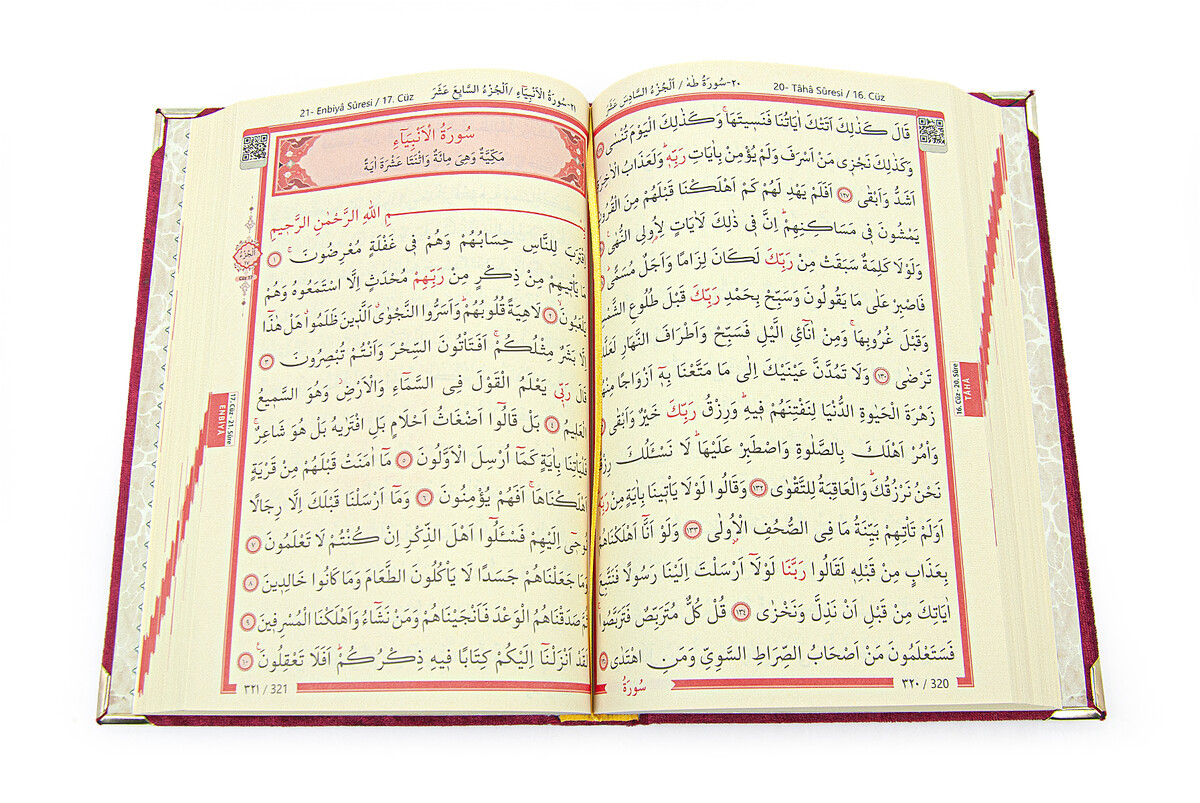 ٢٠-سُورَةُ طٰهٰ / اَلْجُزْءُ السَّادِسَ عَشَرَ 20- Tâhâ Sûresi / 16. Cüz
قَالَ كَذٰلِكَ اَتَتْكَ اٰيَاتُنَا فَنَسِيتَهَاۚ وَكَذٰلِكَ الْيَوْمَ تُنْسٰى
وَكَذٰلِكَ نَجْزِى مَنْ اَسْرَفَ وَلَمْ يُؤْمِنْ بِاٰيَاتِ رَبِّهِۜ وَلَعَذَابُ الْاٰخِرَةِ
اَشَدُّ وَاَبْقٰى ﴿١٢٧﴾ اَفَلَمْ يَهْدِ لَهُمْ كَمْ اَهْلَكْنَا قَبْلَهُمْ مِنَ الْقُرُونِ
يَمْشُونَ فِى مَسَاكِنِهِمْۜ اِنَّ فِى ذٰلِكَ لَاٰيَاتٍ لِاُولِى النُّهٰى
وَلَوْلَا كَلِمَةٌ سَبَقَتْ مِنْ رَبِّكَ لَكَانَ لِزَامًا وَاَجَلٌ مُسَمًّى
فَاصْبِرْ عَلٰى مَا يَقُولُونَ وَسَبِّحْ بِحَمْدِ رَبِّكَ قَبْلَ طُلُوعِ الشَّمْسِ
وَقَبْلَ غُرُوبِهَاۚ وَمِنْ اٰنَآئِ الَّيْلِ فَسَبِّحْ وَاَطْرَافَ النَّهَارِ لَعَلَّكَ
تَرْضٰى ﴿١٣٠﴾ وَلَا تَمُدَّنَّ عَيْنَيْكَ اِلٰى مَا مَتَّعْنَا بِهٖٓ اَزْوَاجًا مِنْهُمْ
زَهْرَةَ الْحَيٰوةِ الدُّنْيَا لِنَفْتِنَهُمْ فِيهِۜ وَرِزْقُ رَبِّكَ خَيْرٌ وَاَبْقٰى
وَأْمُرْ اَهْلَكَ بِالصَّلٰوةِ وَاصْطَبِرْ عَلَيْهَاۜ لَا نَسْـَٔلُكَ رِزْقًاۜ
نَحْنُ نَرْزُقُكَۜ وَالْعَاقِبَةُ لِلتَّقْوٰى ﴿١٣٢﴾ وَقَالُوا لَوْلَا يَأْتِينَا بِاٰيَةٍ مِنْ رَبِّهِۜ
اَوَلَمْ تَأْتِهِمْ بَيِّنَةُ مَا فِى الصُّحُفِ الْاُولٰى ﴿١٣٣﴾ وَلَوْ اَنَّٓا اَهْلَكْنَاهُمْ
بِعَذَابٍ مِنْ قَبْلِهٖ لَقَالُوا رَبَّنَا لَوْلَٓا اَرْسَلْتَ اِلَيْنَا رَسُولًا فَنَتَّبِعَ
اٰيَاتِكَ مِنْ قَبْلِ اَنْ نَذِلَّ وَنَخْزٰى ﴿١٣٤﴾ قُلْ كُلٌّ مُتَرَبِّصٌ فَتَرَبَّصُواۚ
فَسَتَعْلَمُونَ مَنْ اَصْحَابُ الصِّرَاطِ السَّوِىِّ وَمَنِ اهْتَدٰى
سُورَةُ
٣٢٠ / 320
16. Cüz - 20. Sûre
TÂHÂ
21- Enbiyâ Sûresi / 17. Cüz ٢١-سُورَةُ الْاَنْبِيَٓاءِ / اَلْجُزْءُ السَّابِعَ عَشَرَ
سُورَةُ الْاَنْبِيَٓاءِ
مَكِّيَّةٌ وَهِىَ مِائَةٌ وَاثْنَتَا عَشْرَةَ اٰيَةً
مِ اللّٰهِ الرَّحْمٰنِ الرَّحِيمِ
اِقْتَرَبَ لِلنَّاسِ حِسَابُهُمْ وَهُمْ فِى غَفْلَةٍ مُعْرِضُونَۚ ﴿١﴾
مَا يَأْتِيهِمْ مِنْ ذِكْرٍ مِنْ رَبِّهِمْ مُحْدَثٍ اِلَّا اسْتَمَعُوهُ وَهُمْ
يَلْعَبُونَۙ ﴿٢﴾ لَاهِيَةً قُلُوبُهُمْۜ وَاَسَرُّوا النَّجْوٰىۗ اَلَّذِينَ ظَلَمُواۗ هَلْ هٰذَٓا
اِلَّا بَشَرٌ مِثْلُكُمْۚ اَفَتَأْتُونَ السِّحْرَ وَاَنْتُمْ تُبْصِرُونَ ﴿٣﴾
قَالَ رَبِّى يَعْلَمُ الْقَوْلَ فِى السَّمَٓاءِ وَالْاَرْضِۘ وَهُوَ السَّمِيعُ
الْعَلِيمُ ﴿٤﴾ بَلْ قَالُٓوا اَضْغَاثُ اَحْلَامٍ بَلِ افْتَرٰيهُ بَلْ هُوَ شَاعِرٌۚ
فَلْيَأْتِنَا بِاٰيَةٍ كَمَٓا اُرْسِلَ الْاَوَّلُونَ ﴿٥﴾ مَٓا اٰمَنَتْ قَبْلَهُمْ مِنْ قَرْيَةٍ
اَهْلَكْنَاهَاۚ اَفَهُمْ يُؤْمِنُونَ ﴿٦﴾ وَمَٓا اَرْسَلْنَا قَبْلَكَ اِلَّا رِجَالًا
نُوحِٓى اِلَيْهِمْ فَسْـَٔلُٓوا اَهْلَ الذِّكْرِ اِنْ كُنْتُمْ لَا تَعْلَمُونَ ﴿٧﴾
وَمَا جَعَلْنَاهُمْ جَسَدًا لَا يَأْكُلُونَ الطَّعَامَ وَمَا كَانُوا خَالِدِينَ ﴿٨﴾
ثُمَّ صَدَقْنَاهُمُ الْوَعْدَ فَاَنْجَيْنَاهُمْ وَمَنْ نَشَٓاءُ وَاَهْلَكْنَا الْمُسْرِفِينَ ﴿٩﴾
لَقَدْ اَنْزَلْنَٓا اِلَيْكُمْ كِتَابًا فِيهِ ذِكْرُكُمْۜ اَفَلَا تَعْقِلُونَ۟ ﴿١٠﴾
٣٢١ / 321
17. Cüz - 21. Sûre
ENBİYÂ